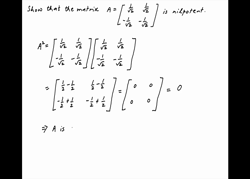 Show that the matrix A = [1/√2 1/√2; -1/√2 -1/√2] is nilpotent.
A² = [1/√2 1/√2; -1/√2 -1/√2] [1/√2 1/√2; -1/√2 -1/√2]
= [1/2 - 1/2 1/2 - 1/2; -1/2 + 1/2 -1/2 + 1/2] = [0 0; 0 0] = 0
⇒ A is